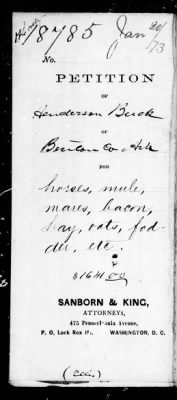 18785 Jan 20/73
No.
PETITION
OF
Henderson Buck
OF
Benton Co Ark
FOR
horses, mule,
mares, bacon,
hay, oats, fod-
der, etc.
$1641.00
SANBORN & KING,
ATTORNEYS,
475 Pennsylvania Avenue,
P. O. Lock Box WASHINGTON, D. C.